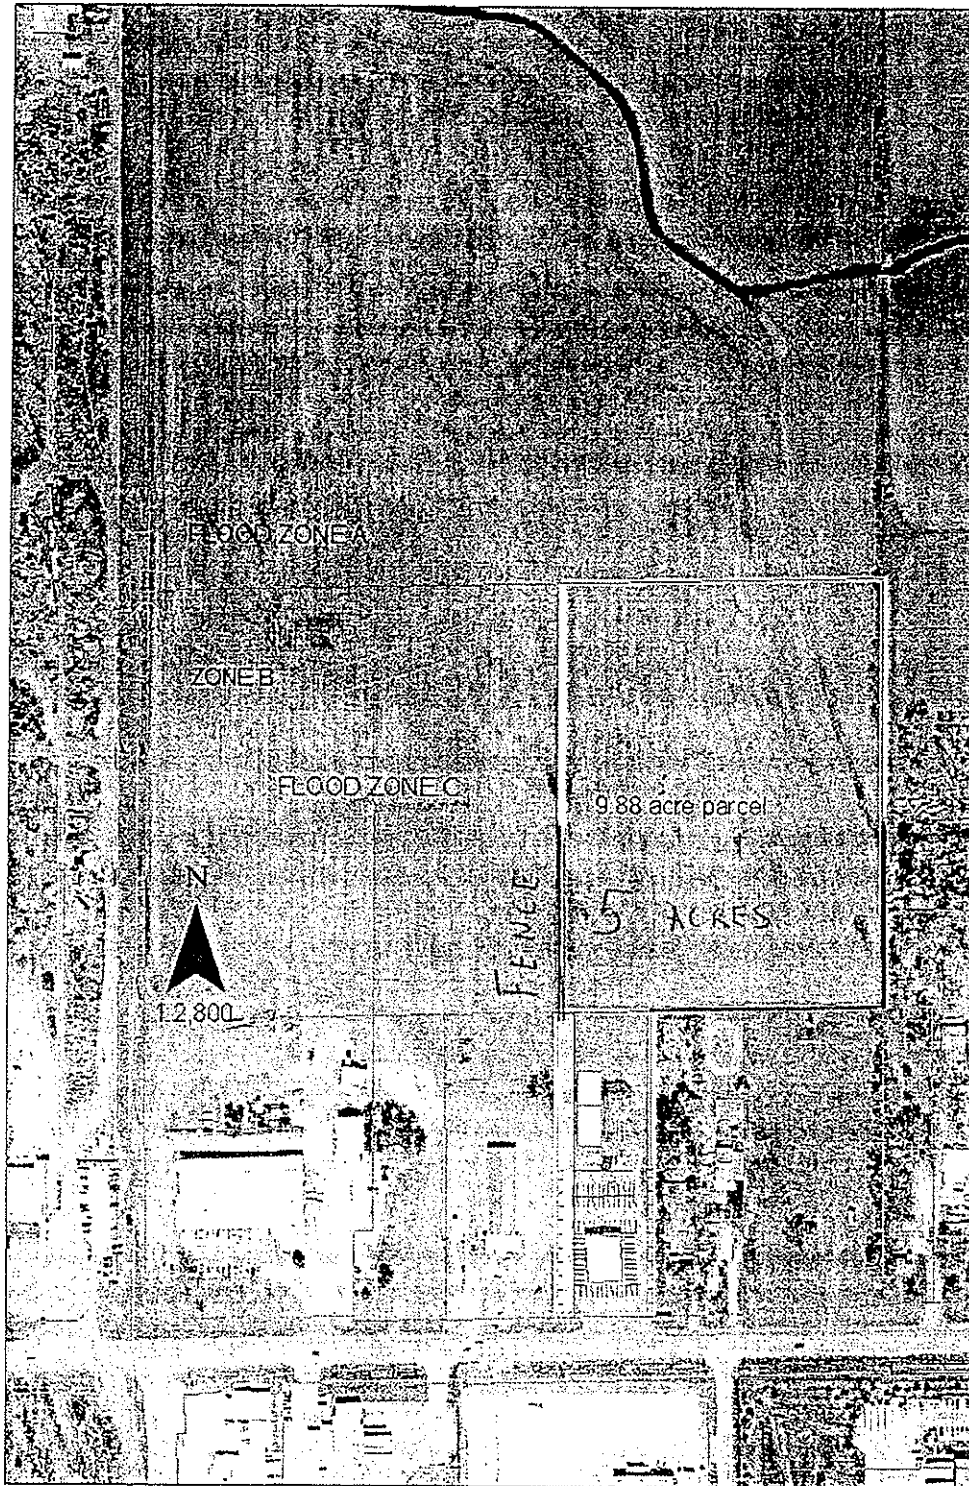 FLOOD ZONE A
ZONE B
FLOOD ZONE C
9.88 acre parcel
FENCE
5 ACRES
N
1:2,800